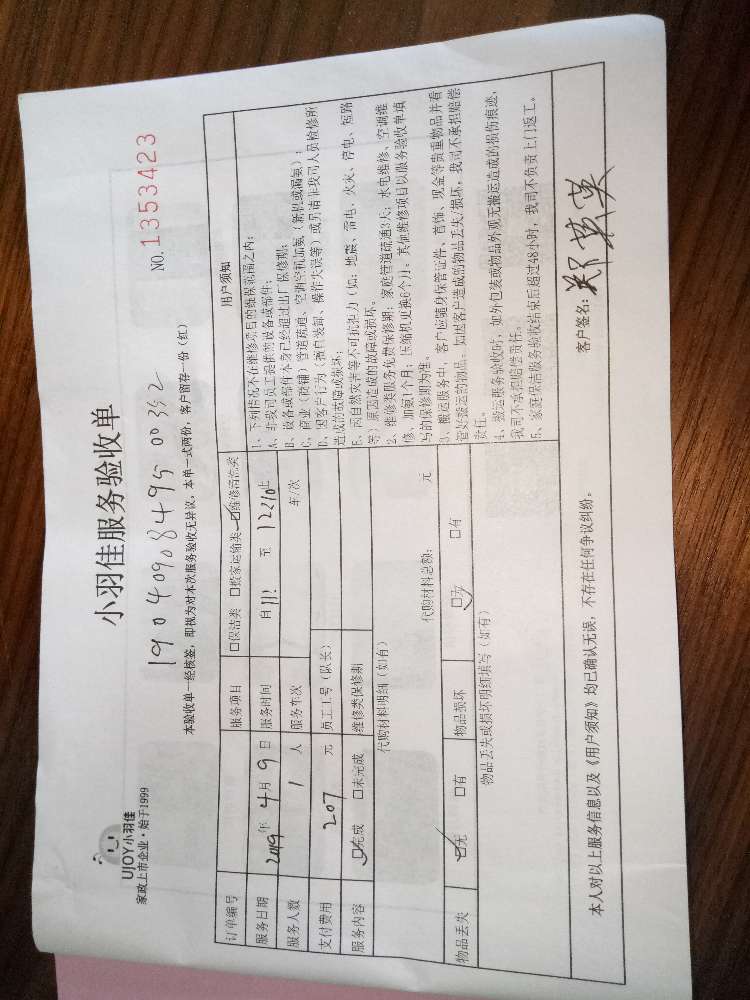 UJOY小羽佳
家政上市企业·始于1999
小羽佳服务验收单
NO.1353423
190409084950 0352
本验收单一经核签，即视为对本次服务验收无异议，本单一式两份，客户留存一份（红）
订单编号 服务项目 □保洁类 □搬家运输类 ☑维修清洗类
服务日期 2019年4月9日 服务时间 自11: 至12210
服务人数 1人 服务车次 车/次
支付费用 207元 员工工号（队长）
服务内容 ☑完成 □未完成 维修类保修期
代购材料明细（如有）
代购材料总额： 元
物品丢失 ☑无 □有 物品损坏 ☑无 □有
物品丢失或损坏明细填写（如有）
用户须知
1、下列情况不在维修项目的维保范围之内：
A、非我司员工提供的设备或部件；
B、设备或部件本身已经超过出厂保修期；
C、商业（商铺）管道疏通、空调空机加氨（新机或漏氨）；
D、因客户行为（擅自装卸、操作失误等）或另请非我司人员检修所
造成的故障或损坏；
E、因自然灾害等不可抗拒力（如：地震、雷电、火灾、停电、短路
等）原因造成的故障或损坏。
2、维修类服务免费保修期：家庭管道疏通3天；水电维修、空调维
修、加氨1个月；压缩机更换6个月。其他维修项目以服务验收单填
写的保修期为准。
3、搬运服务中，客户应随身保管证件、首饰、现金等贵重物品并看
管好搬运的物品，如因客户造成的物品丢失/损坏，我司不承担赔偿
责任。
4、搬运服务验收时，如外包装或物品外观无搬运造成的损伤痕迹，
我司不承担赔偿责任。
5、家庭保洁服务验收结束后超过48小时，我司不负责上门返工。
本人对以上服务信息以及《用户须知》均已确认无误，不存在任何争议纠纷。
客户签名：